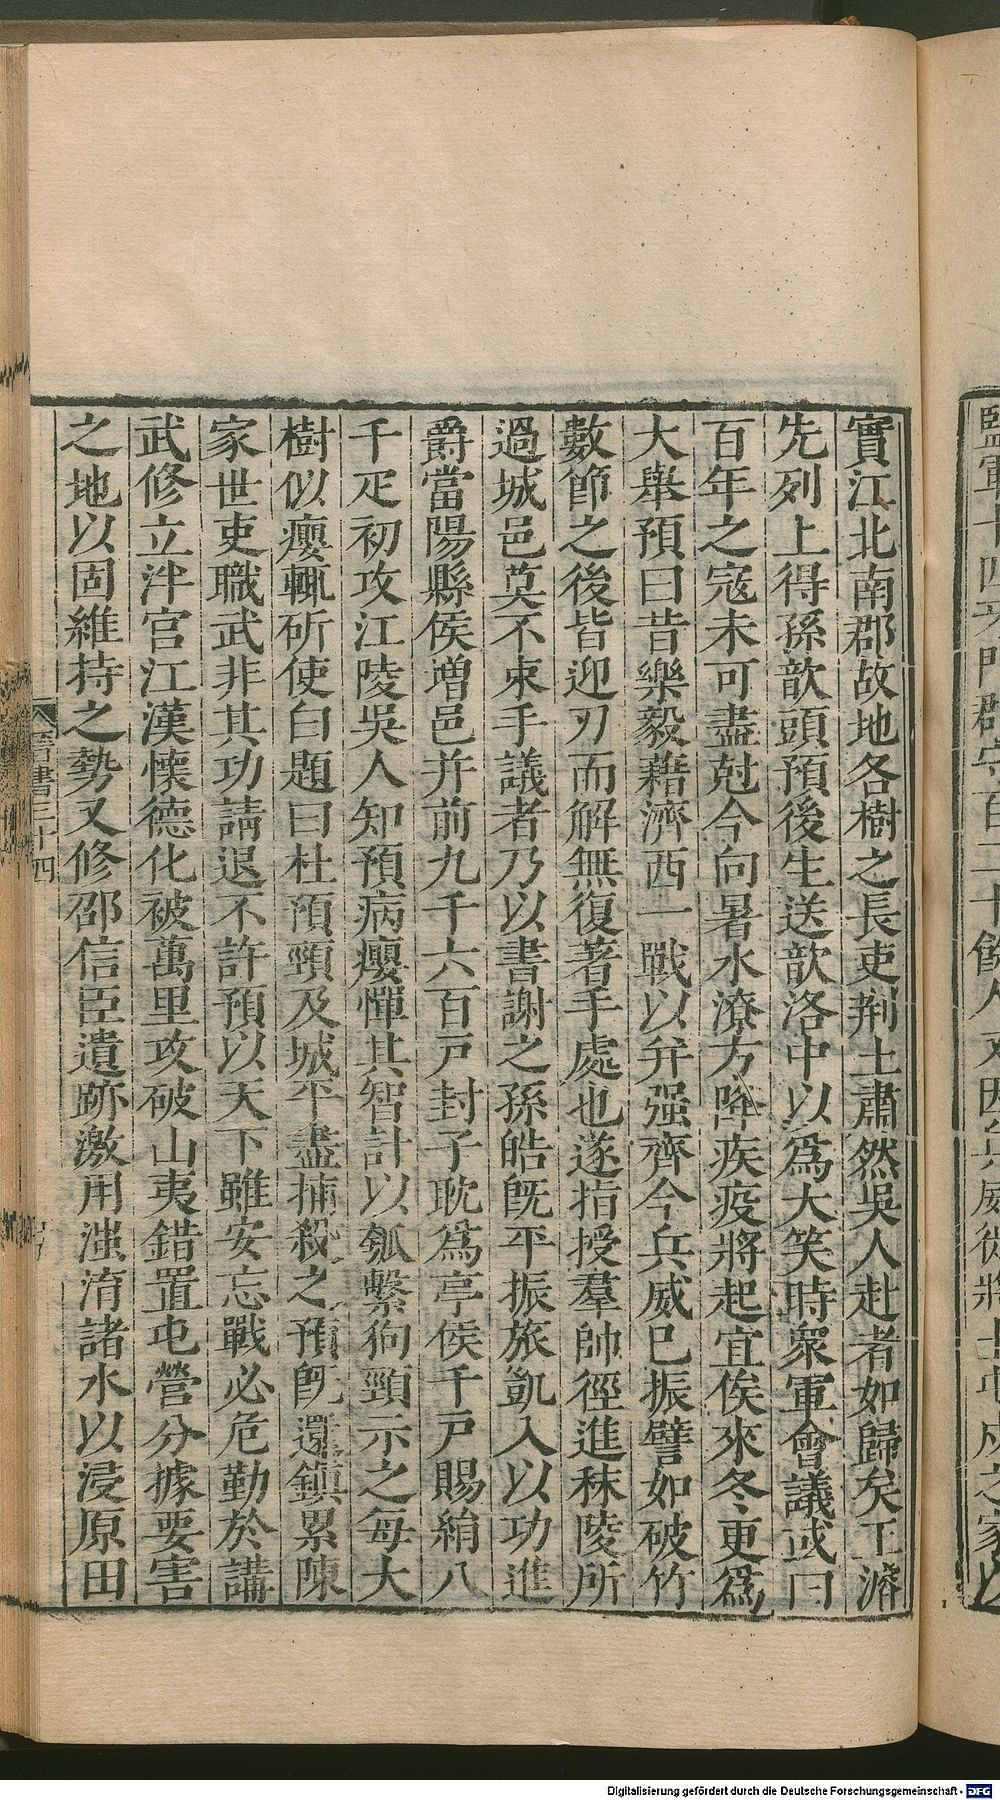 實江北南郡故地各樹之長吏荆土肅然吳人赴者如歸矣王濬
先列上得孫歆頭預後生送歆洛中以爲大笑時衆軍會議或曰
百年之寇未可盡尅今向暑水潦方降疾疫將起宜俟來冬更爲
大舉預曰昔樂毅藉濟西一戰以并强齊今兵威已振譬如破竹
數節之後皆迎刃而解無復著手處也遂指授羣帥徑進秣陵所
過城邑莫不束手議者乃以書謝之孫皓旣平振旅凱入以功進
爵當陽縣侯增邑并前九千六百戸封子耽爲亭侯千戸賜絹八
千疋初攻江陵吳人知預病癭憚其智計以瓠繫狗頸示之每大
樹似癭輒斫使白題曰杜預頸及城平盡捕殺之預旣還鎮累陳
家世吏職武非其功請退不許預以天下雖安忘戰必危勤於講
武修立泮宮江漢懷德化被萬里攻破山夷錯置屯營分據要害
之地以固維持之勢又修邵信臣遺跡激用滍淯諸水以浸原田
晉書三十四
Digitalisierung gefördert durch die Deutsche Forschungsgemeinschaft - DFG